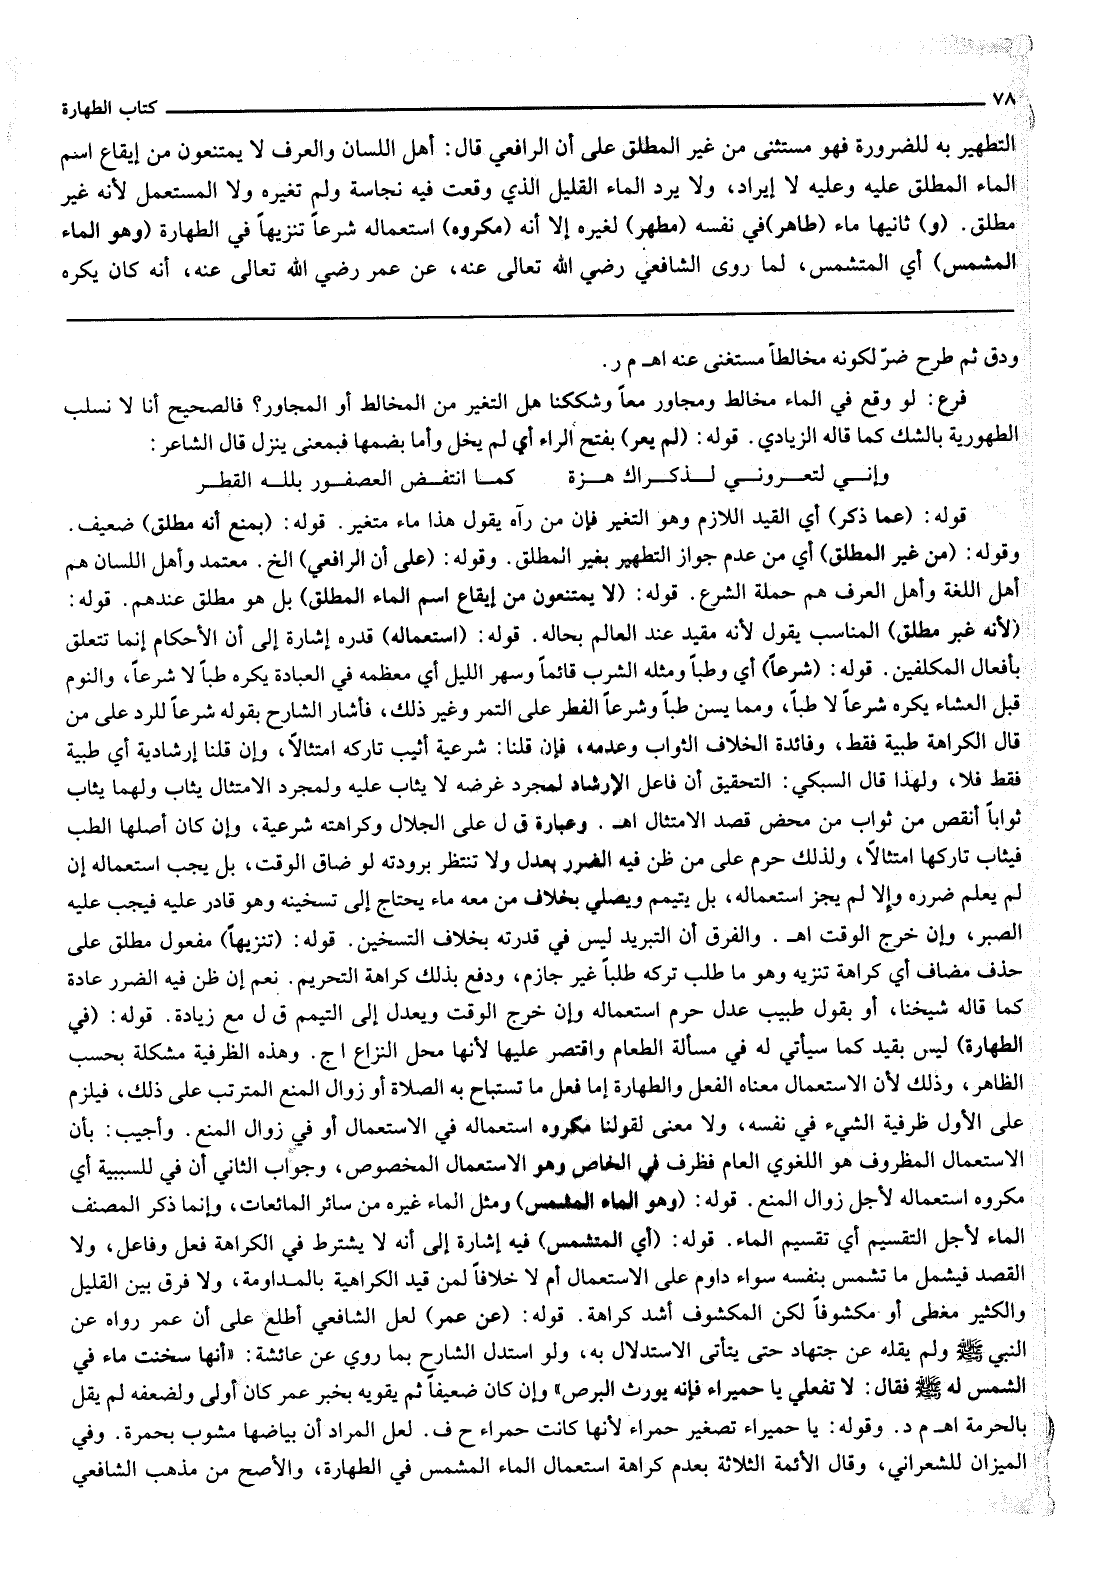 ٧٨ كتاب الطهارة
التطهير به للضرورة فهو مستثنى من غير المطلق على أن الرافعي قال: أهل اللسان والعرف لا يمتنعون من إيقاع اسم
الماء المطلق عليه وعليه لا إيراد، ولا يرد الماء القليل الذي وقعت فيه نجاسة ولم تغيره ولا المستعمل لأنه غير
مطلق. (و) ثانيها ماء (طاهر)في نفسه (مطهر) لغيره إلا أنه (مكروه) استعماله شرعاً تنزيهاً في الطهارة (وهو الماء
المشمس) أي المتشمس، لما روى الشافعي رضي الله تعالى عنه، عن عمر رضي الله تعالى عنه، أنه كان يكره
ودق ثم طرح ضرّ لكونه مخالطاً مستغنى عنه اهـ م ر.
فرع: لو وقع في الماء مخالط ومجاور معاً وشككنا هل التغير من المخالط أو المجاور؟ فالصحيح أنا لا نسلب
الطهورية بالشك كما قاله الزيادي. قوله: (لم يعر) بفتح الراء أي لم يخل وأما بضمها فبمعنى ينزل قال الشاعر:
وإنـي لتعـرونـي لـذكـراك هـزة كمـا انتفـض العصفـور بللـه القطـر
قوله: (عما ذكر) أي القيد اللازم وهو التغير فإن من رآه يقول هذا ماء متغير. قوله: (بمنع أنه مطلق) ضعيف.
وقوله: (من غير المطلق) أي من عدم جواز التطهير بغير المطلق. وقوله: (على أن الرافعي) الخ. معتمد وأهل اللسان هم
أهل اللغة وأهل العرف هم حملة الشرع. قوله: (لا يمتنعون من إيقاع اسم الماء المطلق) بل هو مطلق عندهم. قوله:
(لأنه غير مطلق) المناسب يقول لأنه مقيد عند العالم بحاله. قوله: (استعماله) قدره إشارة إلى أن الأحكام إنما تتعلق
بأفعال المكلفين. قوله: (شرعاً) أي وطباً ومثله الشرب قائماً وسهر الليل أي معظمه في العبادة يكره طباً لا شرعاً، والنوم
قبل العشاء يكره شرعاً لا طباً، ومما يسن طباً وشرعاً الفطر على التمر وغير ذلك، فأشار الشارح بقوله شرعاً للرد على من
قال الكراهة طبية فقط، وفائدة الخلاف الثواب وعدمه، فإن قلنا: شرعية أثيب تاركه امتثالاً، وإن قلنا إرشادية أي طبية
فقط فلا، ولهذا قال السبكي: التحقيق أن فاعل الإرشاد لمجرد غرضه لا يثاب عليه ولمجرد الامتثال يثاب ولهما يثاب
ثواباً أنقص من ثواب من محض قصد الامتثال اهـ. وعبارة ق ل على الجلال وكراهته شرعية، وإن كان أصلها الطب
فيثاب تاركها امتثالاً، ولذلك حرم على من ظن فيه الضرر بعدل ولا تنتظر برودته لو ضاق الوقت، بل يجب استعماله إن
لم يعلم ضرره وإلا لم يجز استعماله، بل يتيمم ويصلي بخلاف من معه ماء يحتاج إلى تسخينه وهو قادر عليه فيجب عليه
الصبر، وإن خرج الوقت اهـ. والفرق أن التبريد ليس في قدرته بخلاف التسخين. قوله: (تنزيهاً) مفعول مطلق على
حذف مضاف أي كراهة تنزيه وهو ما طلب تركه طلباً غير جازم، ودفع بذلك كراهة التحريم. نعم إن ظن فيه الضرر عادة
كما قاله شيخنا، أو بقول طبيب عدل حرم استعماله وإن خرج الوقت ويعدل إلى التيمم ق ل مع زيادة. قوله: (في
الطهارة) ليس بقيد كما سيأتي له في مسألة الطعام واقتصر عليها لأنها محل النزاع ا ج. وهذه الظرفية مشكلة بحسب
الظاهر، وذلك لأن الاستعمال معناه الفعل والطهارة إما فعل ما تستباح به الصلاة أو زوال المنع المترتب على ذلك، فيلزم
على الأول ظرفية الشيء في نفسه، ولا معنى لقولنا مكروه استعماله في الاستعمال أو في زوال المنع. وأجيب: بأن
الاستعمال المظروف هو اللغوي العام فظرف في الخاص وهو الاستعمال المخصوص، وجواب الثاني أن في للسببية أي
مكروه استعماله لأجل زوال المنع. قوله: (وهو الماء المشمس) ومثل الماء غيره من سائر المائعات، وإنما ذكر المصنف
الماء لأجل التقسيم أي تقسيم الماء. قوله: (أي المتشمس) فيه إشارة إلى أنه لا يشترط في الكراهة فعل وفاعل، ولا
القصد فيشمل ما تشمس بنفسه سواء داوم على الاستعمال أم لا خلافاً لمن قيد الكراهية بالمـداومة، ولا فرق بين القليل
والكثير مغطى أو مكشوفاً لكن المكشوف أشد كراهة. قوله: (عن عمر) لعل الشافعي أطلع على أن عمر رواه عن
النبي ﷺ ولم يقله عن جتهاد حتى يتأتى الاستدلال به، ولو استدل الشارح بما روي عن عائشة: «أنها سخنت ماء في
الشمس له ﷺ فقال: لا تفعلي يا حميراء فإنه يورث البرص» وإن كان ضعيفاً ثم يقويه بخبر عمر كان أولى ولضعفه لم يقل
بالحرمة اهـ م د. وقوله: يا حميراء تصغير حمراء لأنها كانت حمراء ح ف. لعل المراد أن بياضها مشوب بحمرة. وفي
الميزان للشعراني، وقال الأئمة الثلاثة بعدم كراهة استعمال الماء المشمس في الطهارة، والأصح من مذهب الشافعي